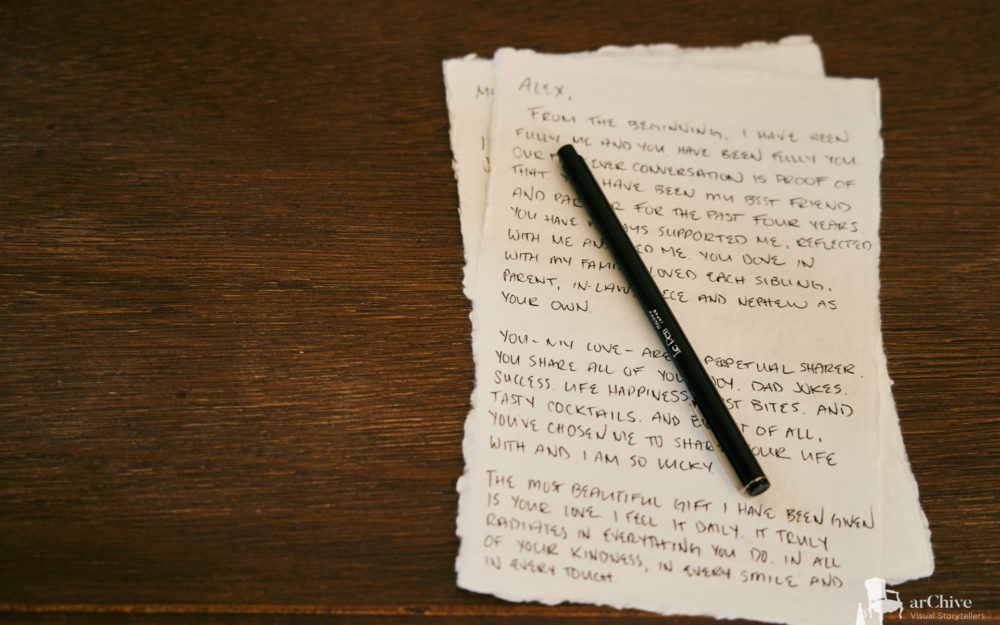 ALEX,
FROM THE BEGINNING, I HAVE BEEN
FULLY ME AND YOU HAVE BEEN FULLY YOU.
OUR EVER CONVERSATION IS PROOF OF
THAT. HAVE BEEN MY BEST FRIEND
AND FOR THE PAST FOUR YEARS.
YOU HAVE SUPPORTED ME, REFLECTED
WITH ME ME. YOU DOVE IN
WITH MY LOVED EACH SIBLING,
PARENT, IN-LAW, AND NEPHEW AS
YOUR OWN.
YOU - MY LOVE - ARE PERPETUAL SHARER.
YOU SHARE ALL OF JOY. DAD JOKES.
SUCCESS. LIFE HAPPINESS. BITES. AND
TASTY COCKTAILS. AND OF ALL,
YOU'VE CHOSEN ME TO SHARE YOUR LIFE
WITH AND I AM SO LUCKY.
THE MOST BEAUTIFUL GIFT I HAVE BEEN GIVEN
IS YOUR LOVE. I FEEL IT DAILY. IT TRULY
RADIATES IN EVERYTHING YOU DO. IN ALL
OF YOUR KINDNESS, IN EVERY SMILE AND
IN EVERY TOUCH.
Le Pen
arChive
Visual Storytellers